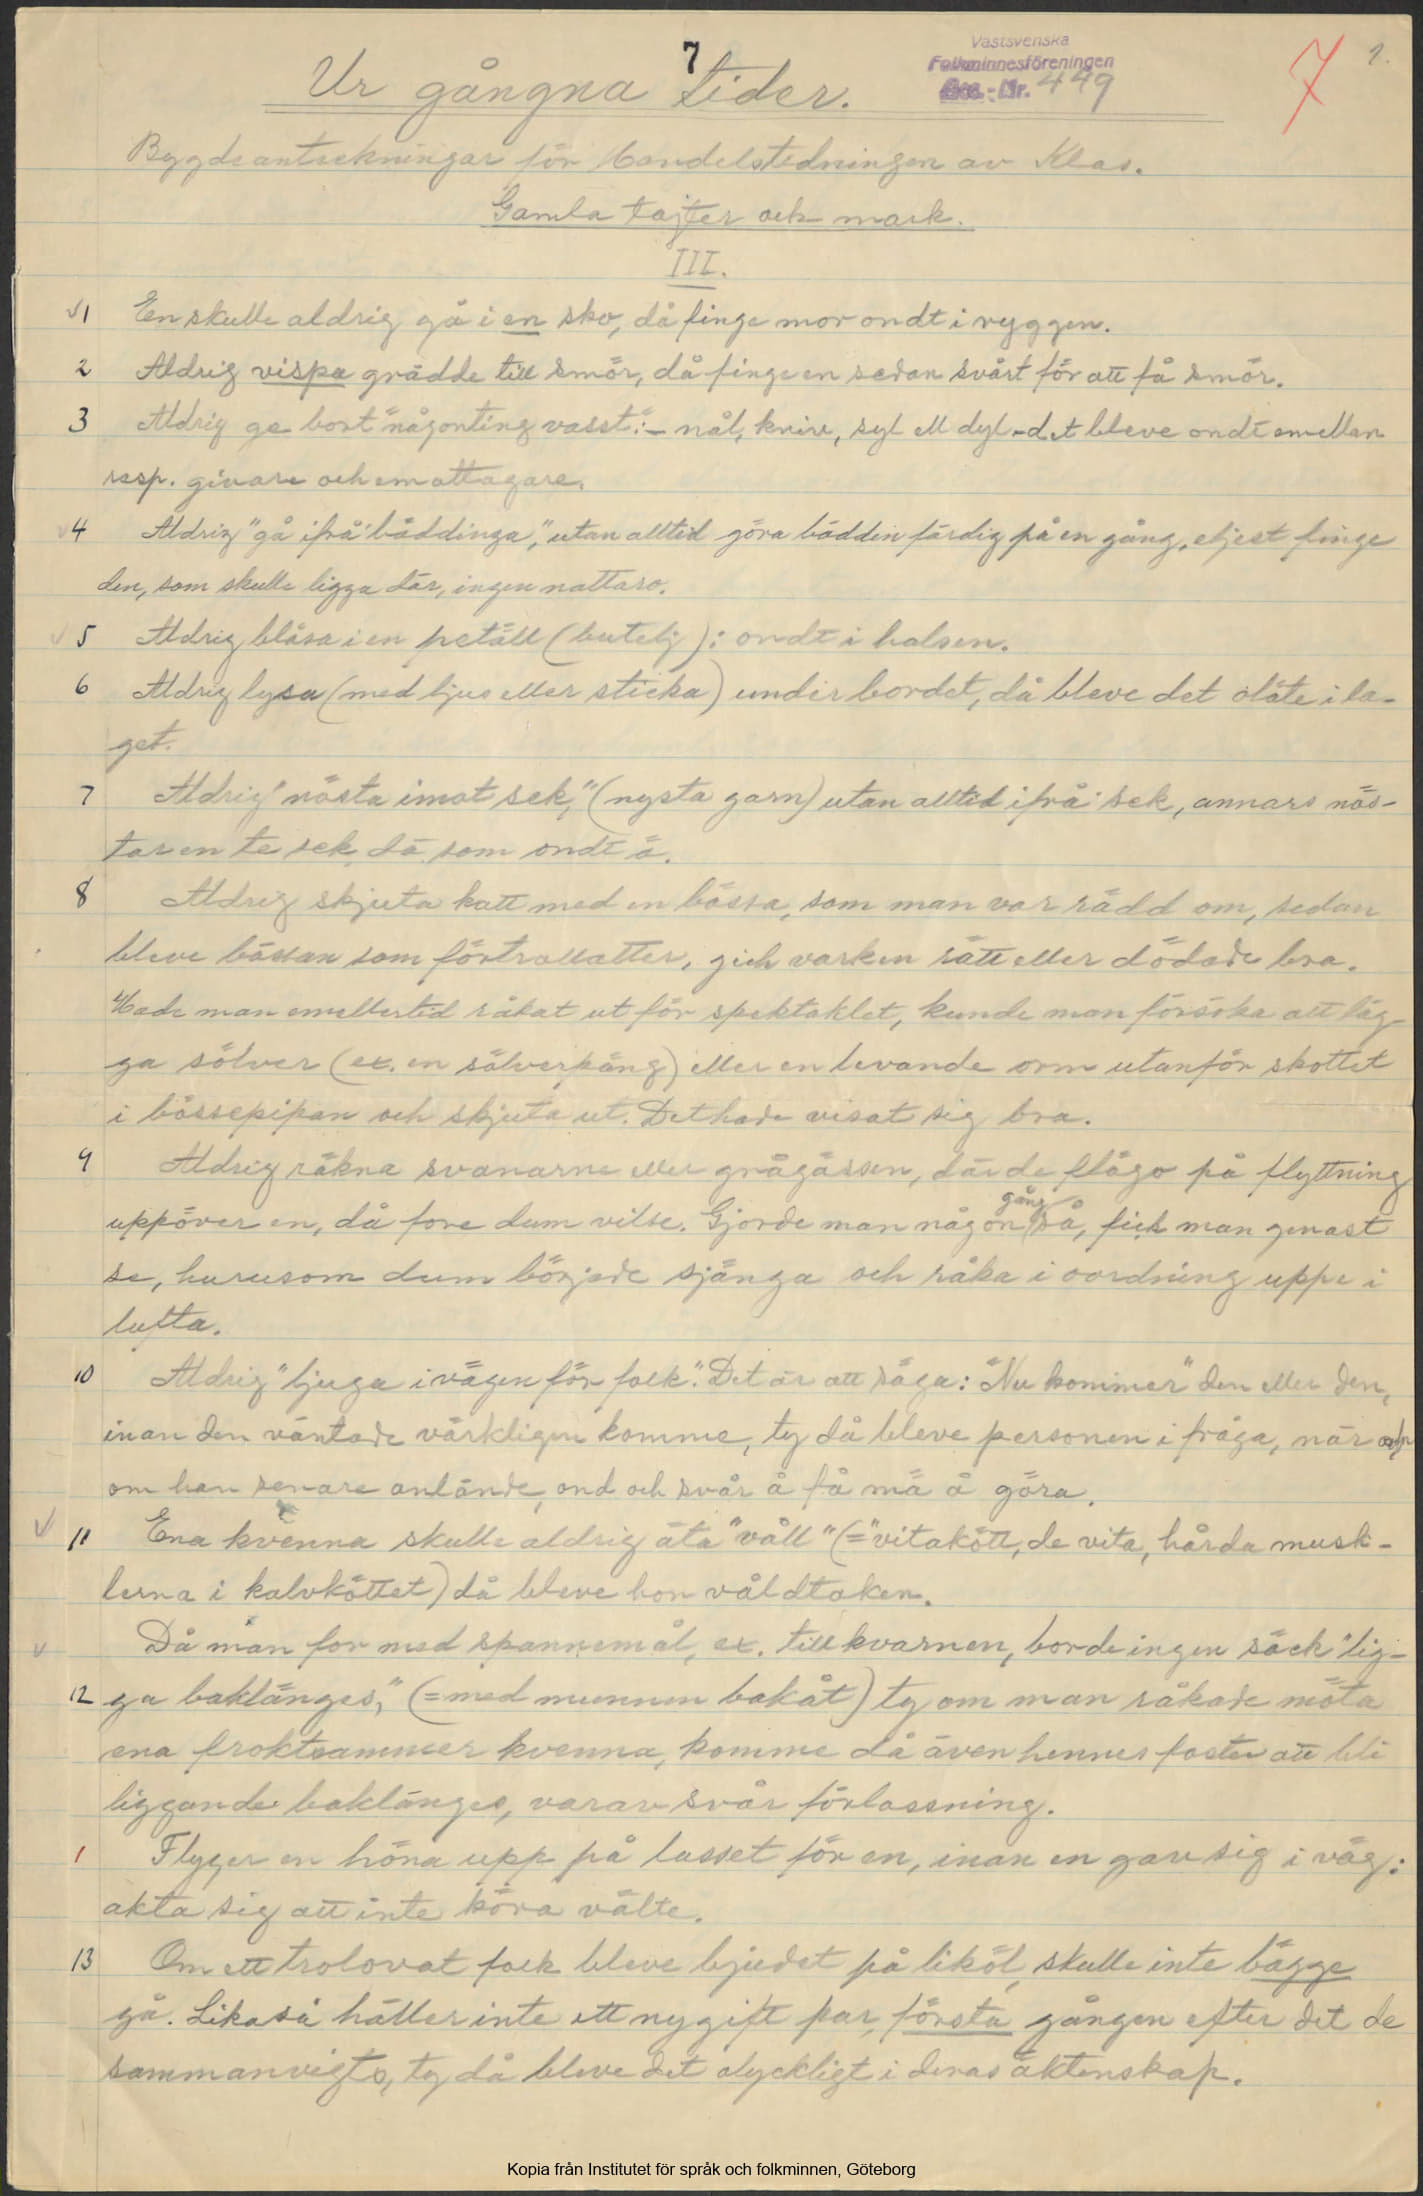 7
Västsvenska
Folkminnesföreningen
Acc.-Nr. 449
7
1.
Ur gångna tider.
Bygdeanteckningar för Handelstidningen av Klas.
Gamla tajter och mark.
III.
1 En skulle aldrig gå i en sko, då finge mor ondt i ryggen.
2 Aldrig vispa grädde till smör, då finge en sedan svårt för att få smör.
3 Aldrig ge bort "någonting vasst": - nål, kniv, syl ell dyl - det bleve ondt emellan
resp. givare och emottagare.
4 Aldrig "gå ifrå bäddinga", utan alltid göra bädden färdig på en gång, eljest finge
den, som skulle ligga där, ingen nattaro.
5 Aldrig blåsa i en petäll (butelj): ondt i halsen.
6 Aldrig lysa (med ljus eller sticka) under bordet, då bleve det olåte i la-
get.
7 Aldrig "nösta imot sek," (nysta garn) utan alltid ifrå sek, annars nös-
tar en te sek dä som ondt ä.
8 Aldrig skjuta katt med en bössa, som man var rädd om, sedan
bleve bössan som förtrollatter, gick varken rätt eller dödade bra.
Hade man emellertid råkat ut för spektaklet, kunde man försöka att läg-
ga sölver (ex. en sölverpäng) eller en levande orm utanför skottet
i bössepipan och skjuta ut. Det hade visat sig bra.
9 Aldrig räkna svanarne eller grågässen, där de flögo på flyttning
uppöver en, då fore dum vilse. Gjorde man någon gång så, fick man genast
se, hurusom dum började sjänga och råka i oordning uppe i
lufta.
10 Aldrig "ljuga i vägen för folk". Det är att säga: "Nu kommer" den eller den,
inan den väntade värkligen komme, ty då bleve personen i fråga, när och
om han senare anlände, ond och svår å få mä å göra.
11 Ena kvenna skulle aldrig äta "våll" (="vitakött, de vita, hårda musk-
lerna i kalvköttet) då bleve hon våldtaken.
Då man for med spannemål, ex. till kvarnen, borde ingen säck "lig-
12 ga baklänges," (= med munnen bakåt) ty om man råkade möta
ena froktsammer kvenna, komme då även hennes foster att bli
liggande baklänges, varav svår förlossning.
1 Flyger en höna upp på lasset för en, inan en gav sig i väg:
akta sig att inte köra välte.
13 Om ett trolovat folk bleve bjudet på liköl, skulle inte bägge
gå. Likaså häller inte ett nygift par, första gången efter det de
sammanvigts, ty då bleve det olyckligt i deras äktenskap.
Kopia från Institutet för språk och folkminnen, Göteborg